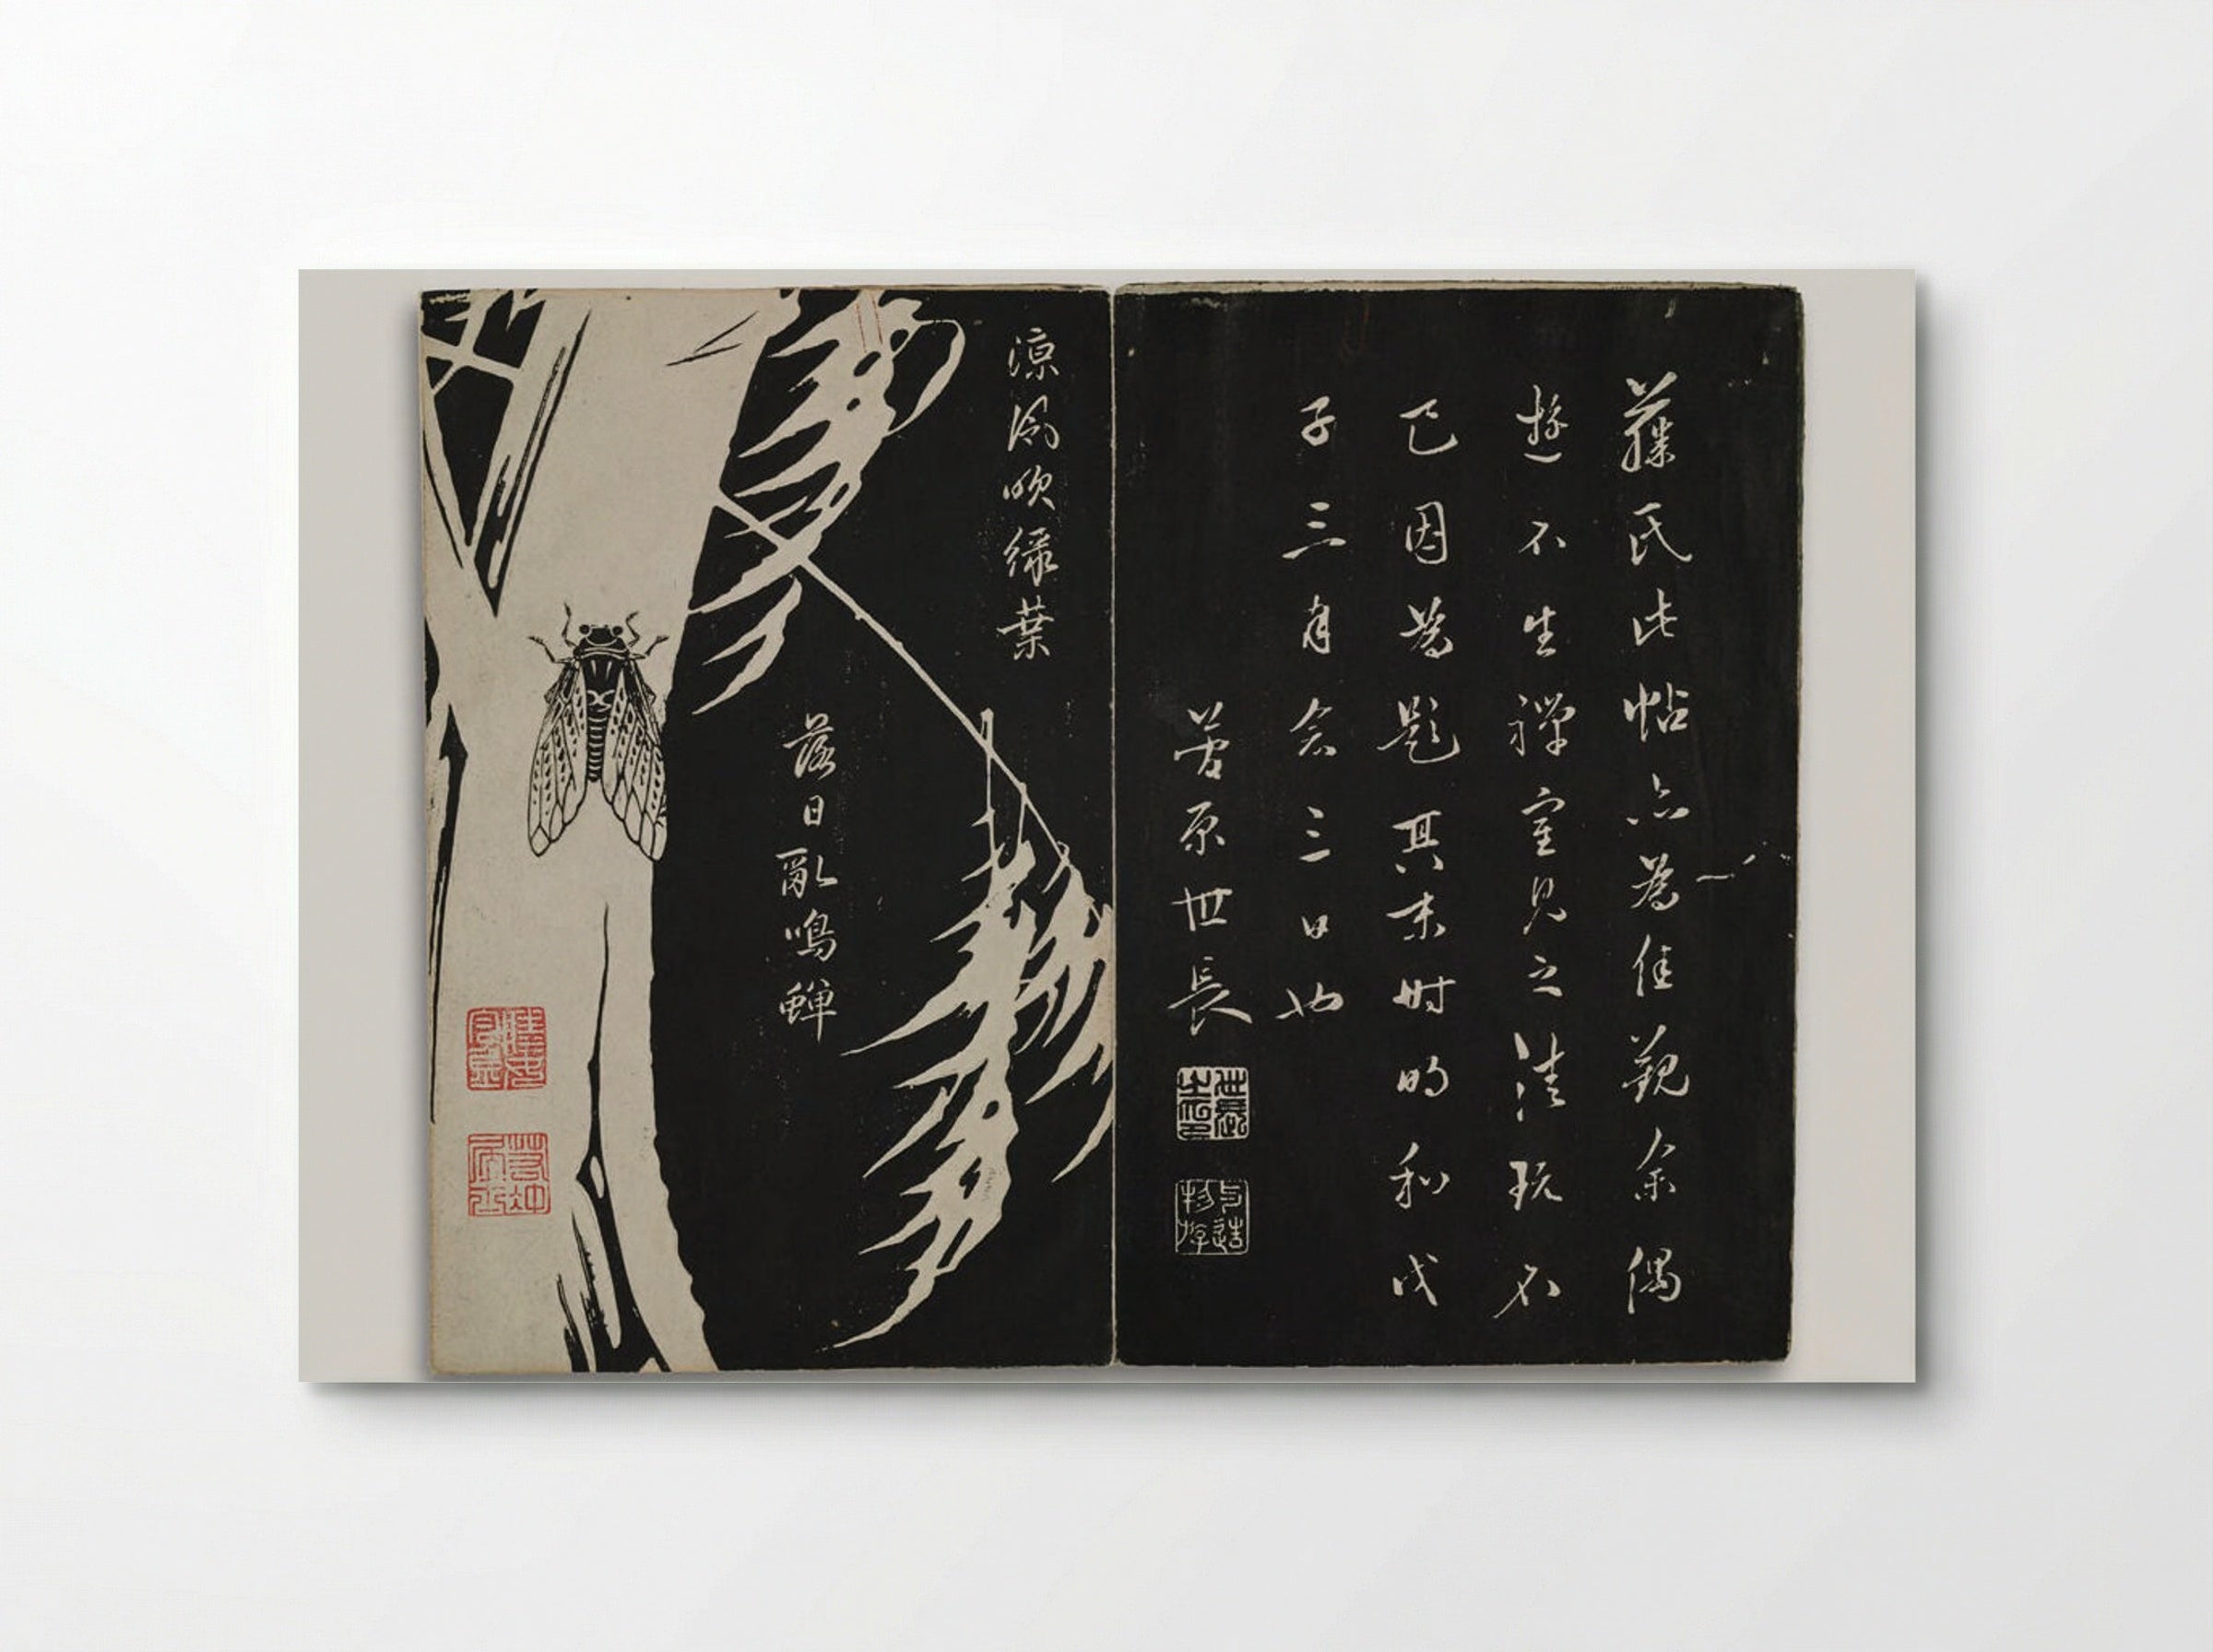 藤氏此帖亦為佳観余偶
遊不生禅室見之清玩不
已因為題其末時明和戊
子三月念三日也
菅原世長
世長之印
涼風吹緑葉
落日亂鳴蟬